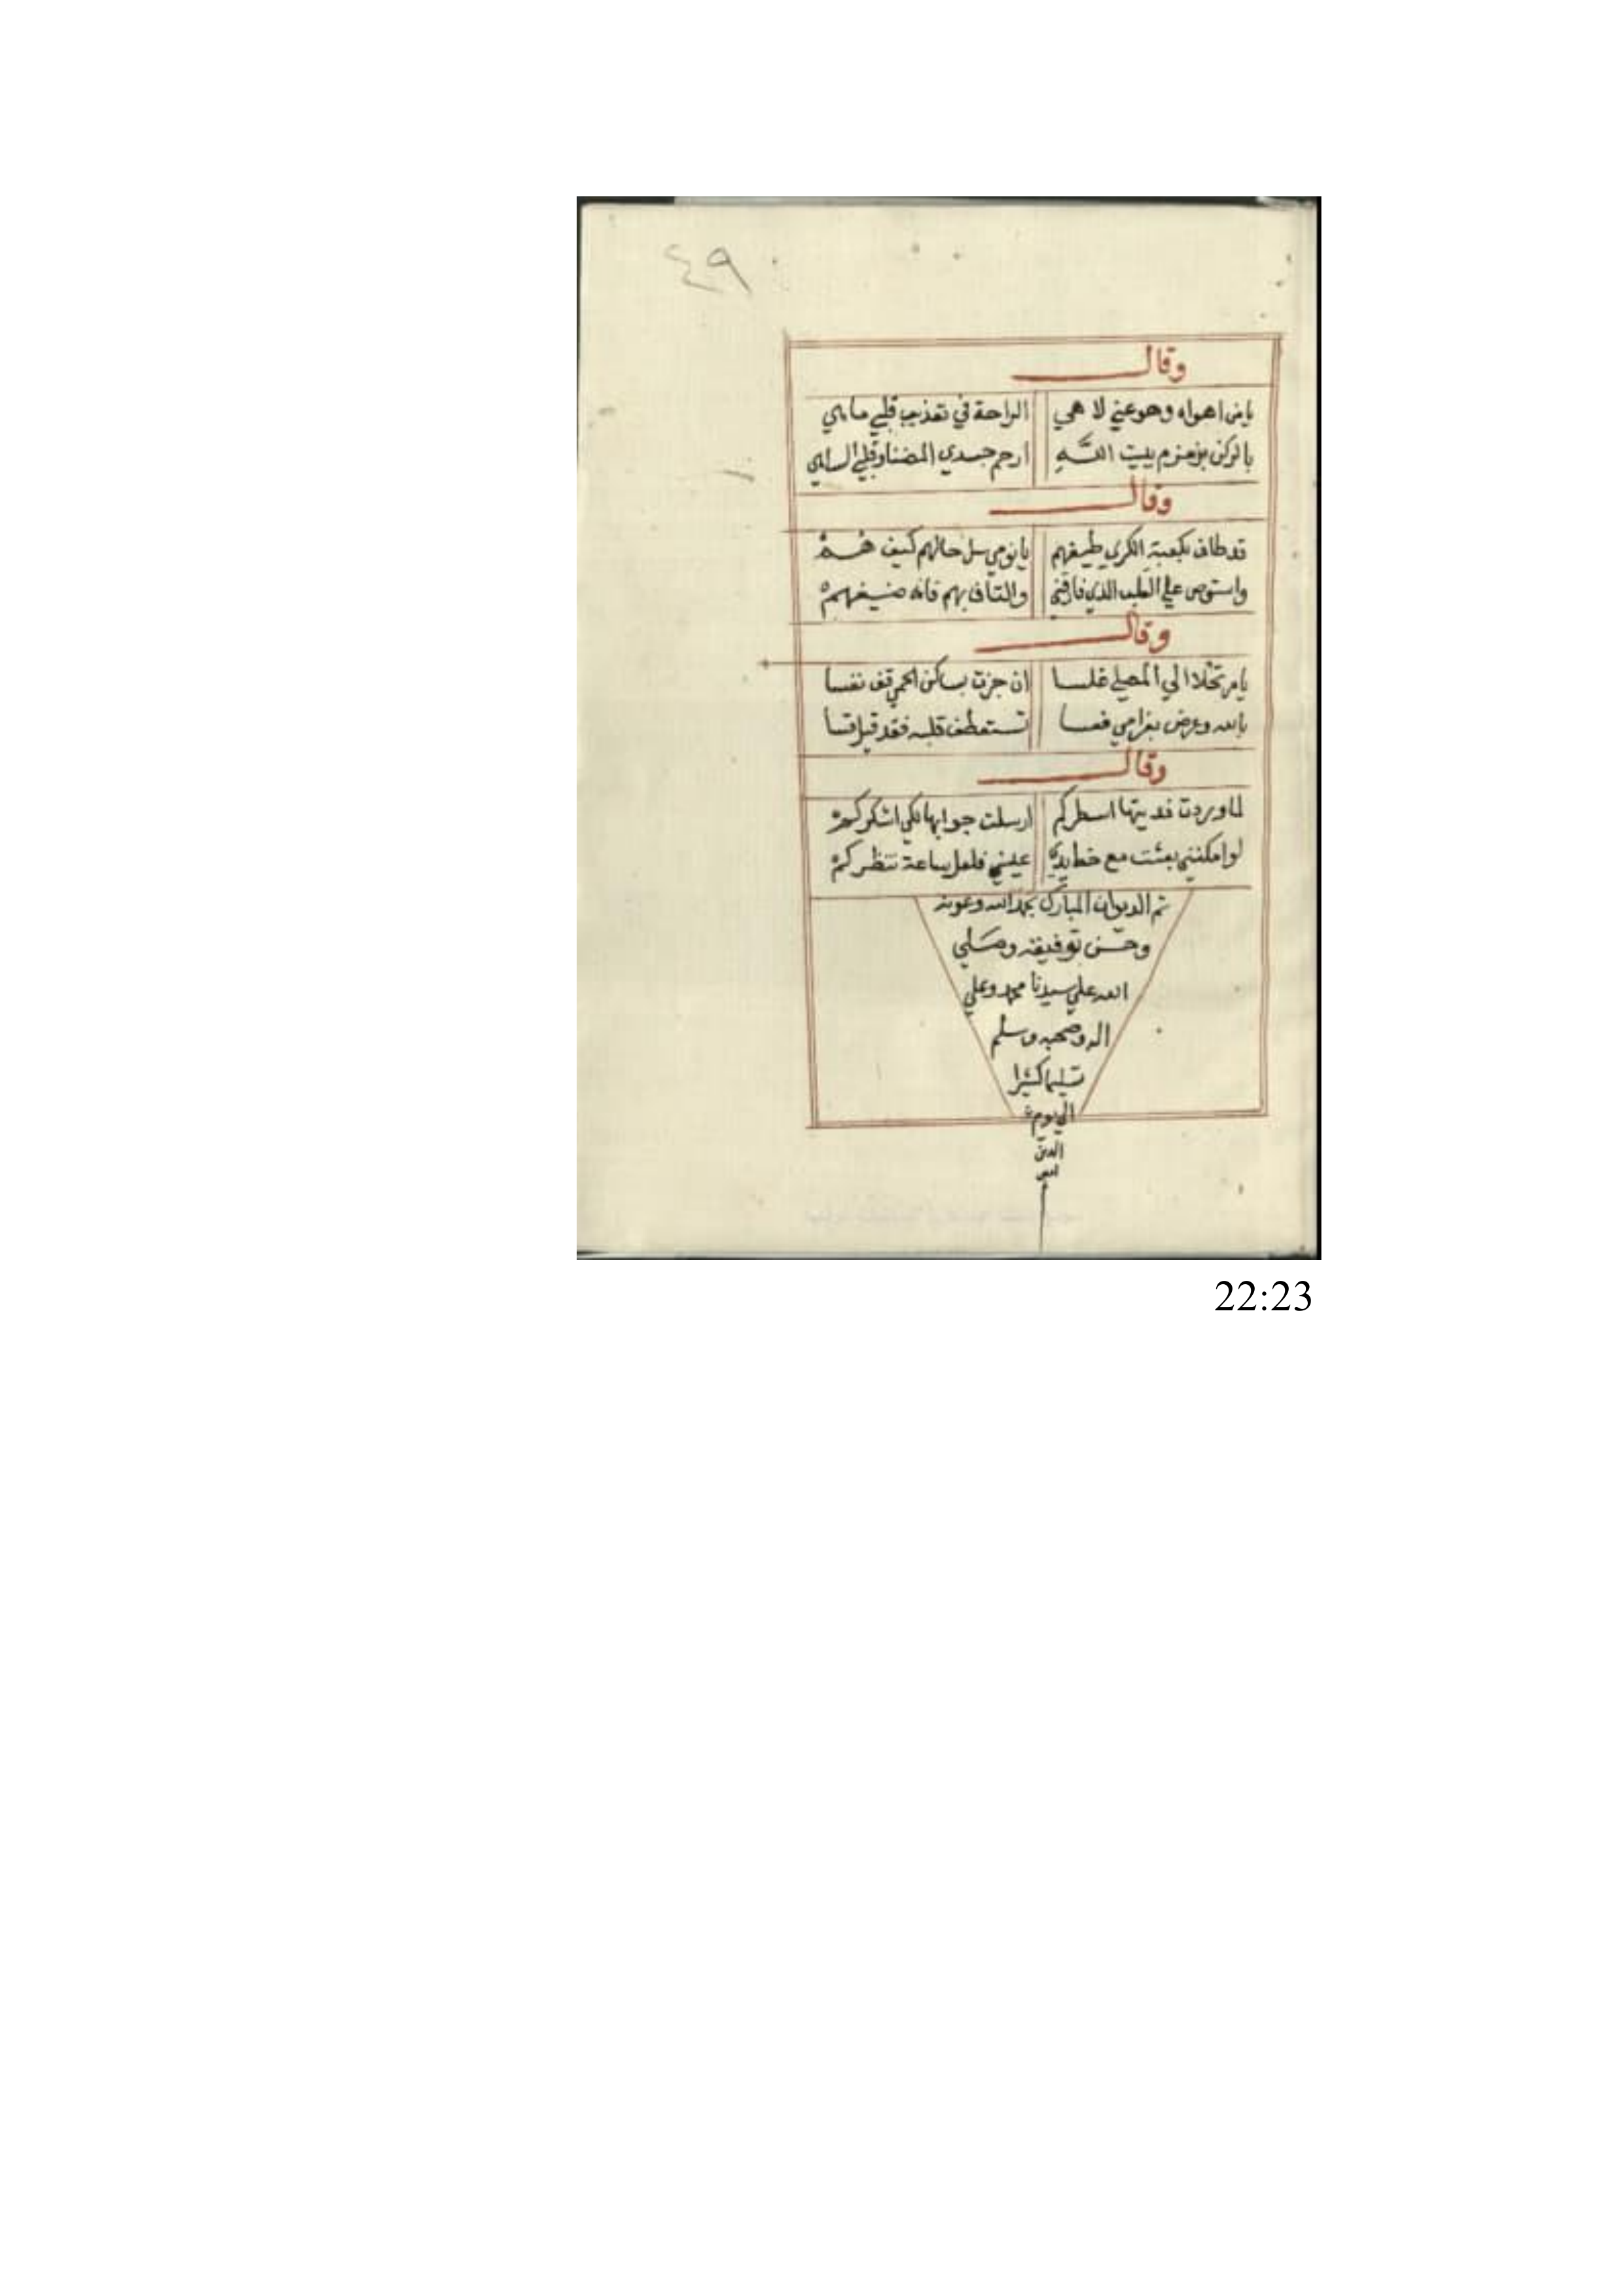 ٤٩
وقال
يا من اهواه وهو عني لاهي الراحة في تعذيب قلبي ما هي
بالركن بزمزم ببيت اللَّهِ ارحم جسدي المضنا وقلبي الساهي
وقال
قد طاف بكعبة الكري طيفهم يا نومي سل حالهم كيف هُمُ
واستوص علي القلب الذي فارقني والتاف بهم فانه ضيفهم
وقال
يا مرتحلا الي المصلي غلسا ان جزت بساكن الحمي قف نفسا
بالله وعرض بغرامي فعسا تستعطف قلبه فقد قيل قسا
وقال
لما وردت فديتها اسطركم ارسلت جوابها لكي اشكركم
لو امكنني بعثت مع خط يدي عيني فلعل ساعة تنظركم
تم الديوان المبارك بحمد الله وعونه
وحسن توفيقه وصلي
الله علي سيدنا محمد وعلي
اله وصحبه وسلم
تسليما كثيرا
الي يوم
الدين
امين
22:23